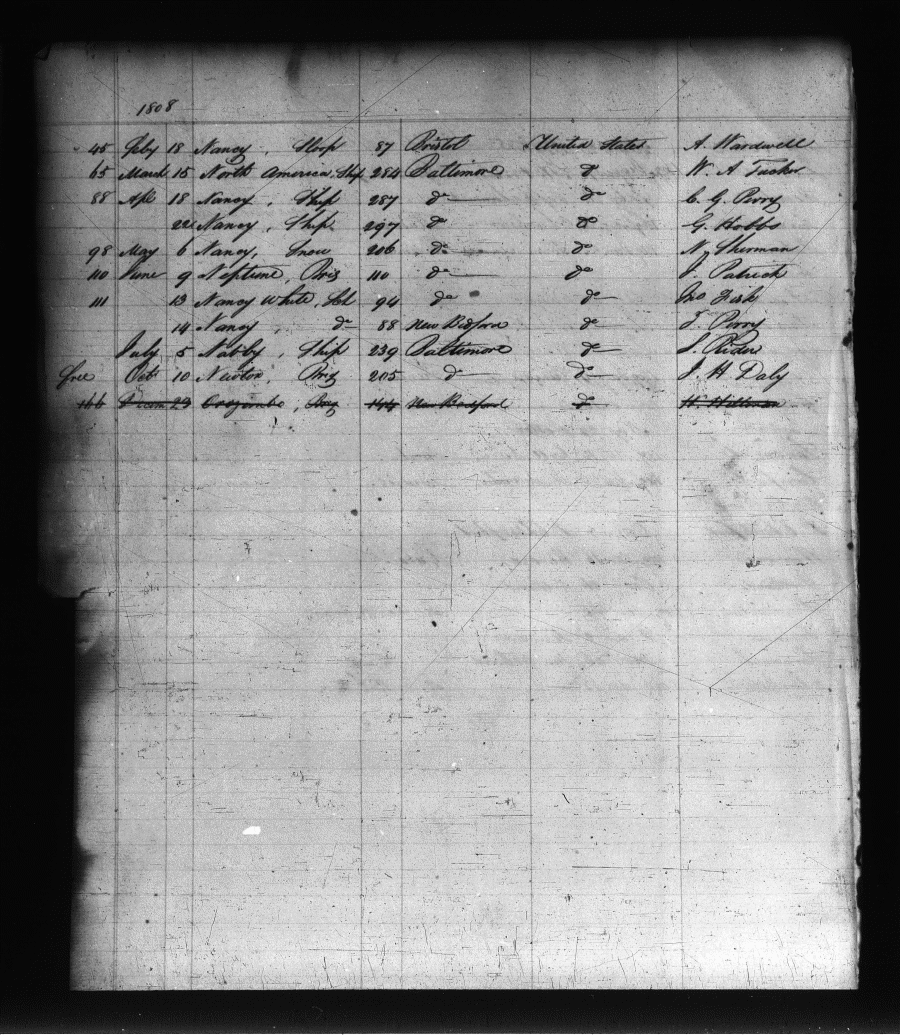 1808
45 Feby 18 Nancy, Sloop 87 Bristol United States A. Wardwell
65 March 15 North America, Ship 284 Baltimore do W. A Tucker
88 Apl 18 Nancy, Ship 287 do do C. G. Perry
22 Nancy, Ship. 297 do do G. Hobbs
98 May 6 Nancy, Snow 206 do do N. Sherman
110 June 9 Neptune, Brig 110 do do J. Patrick
111 13 Nancy White, Sch 94 do do Jno Fish
14 Nancy, do 88 New Bedford do T. Perry
July 5 Nabby, Ship 239 Baltimore do J. Rider
free Oct 10 Newton, Brig 205 do do J. H. Daly
166 23 144 New Bedford do H. Hillman